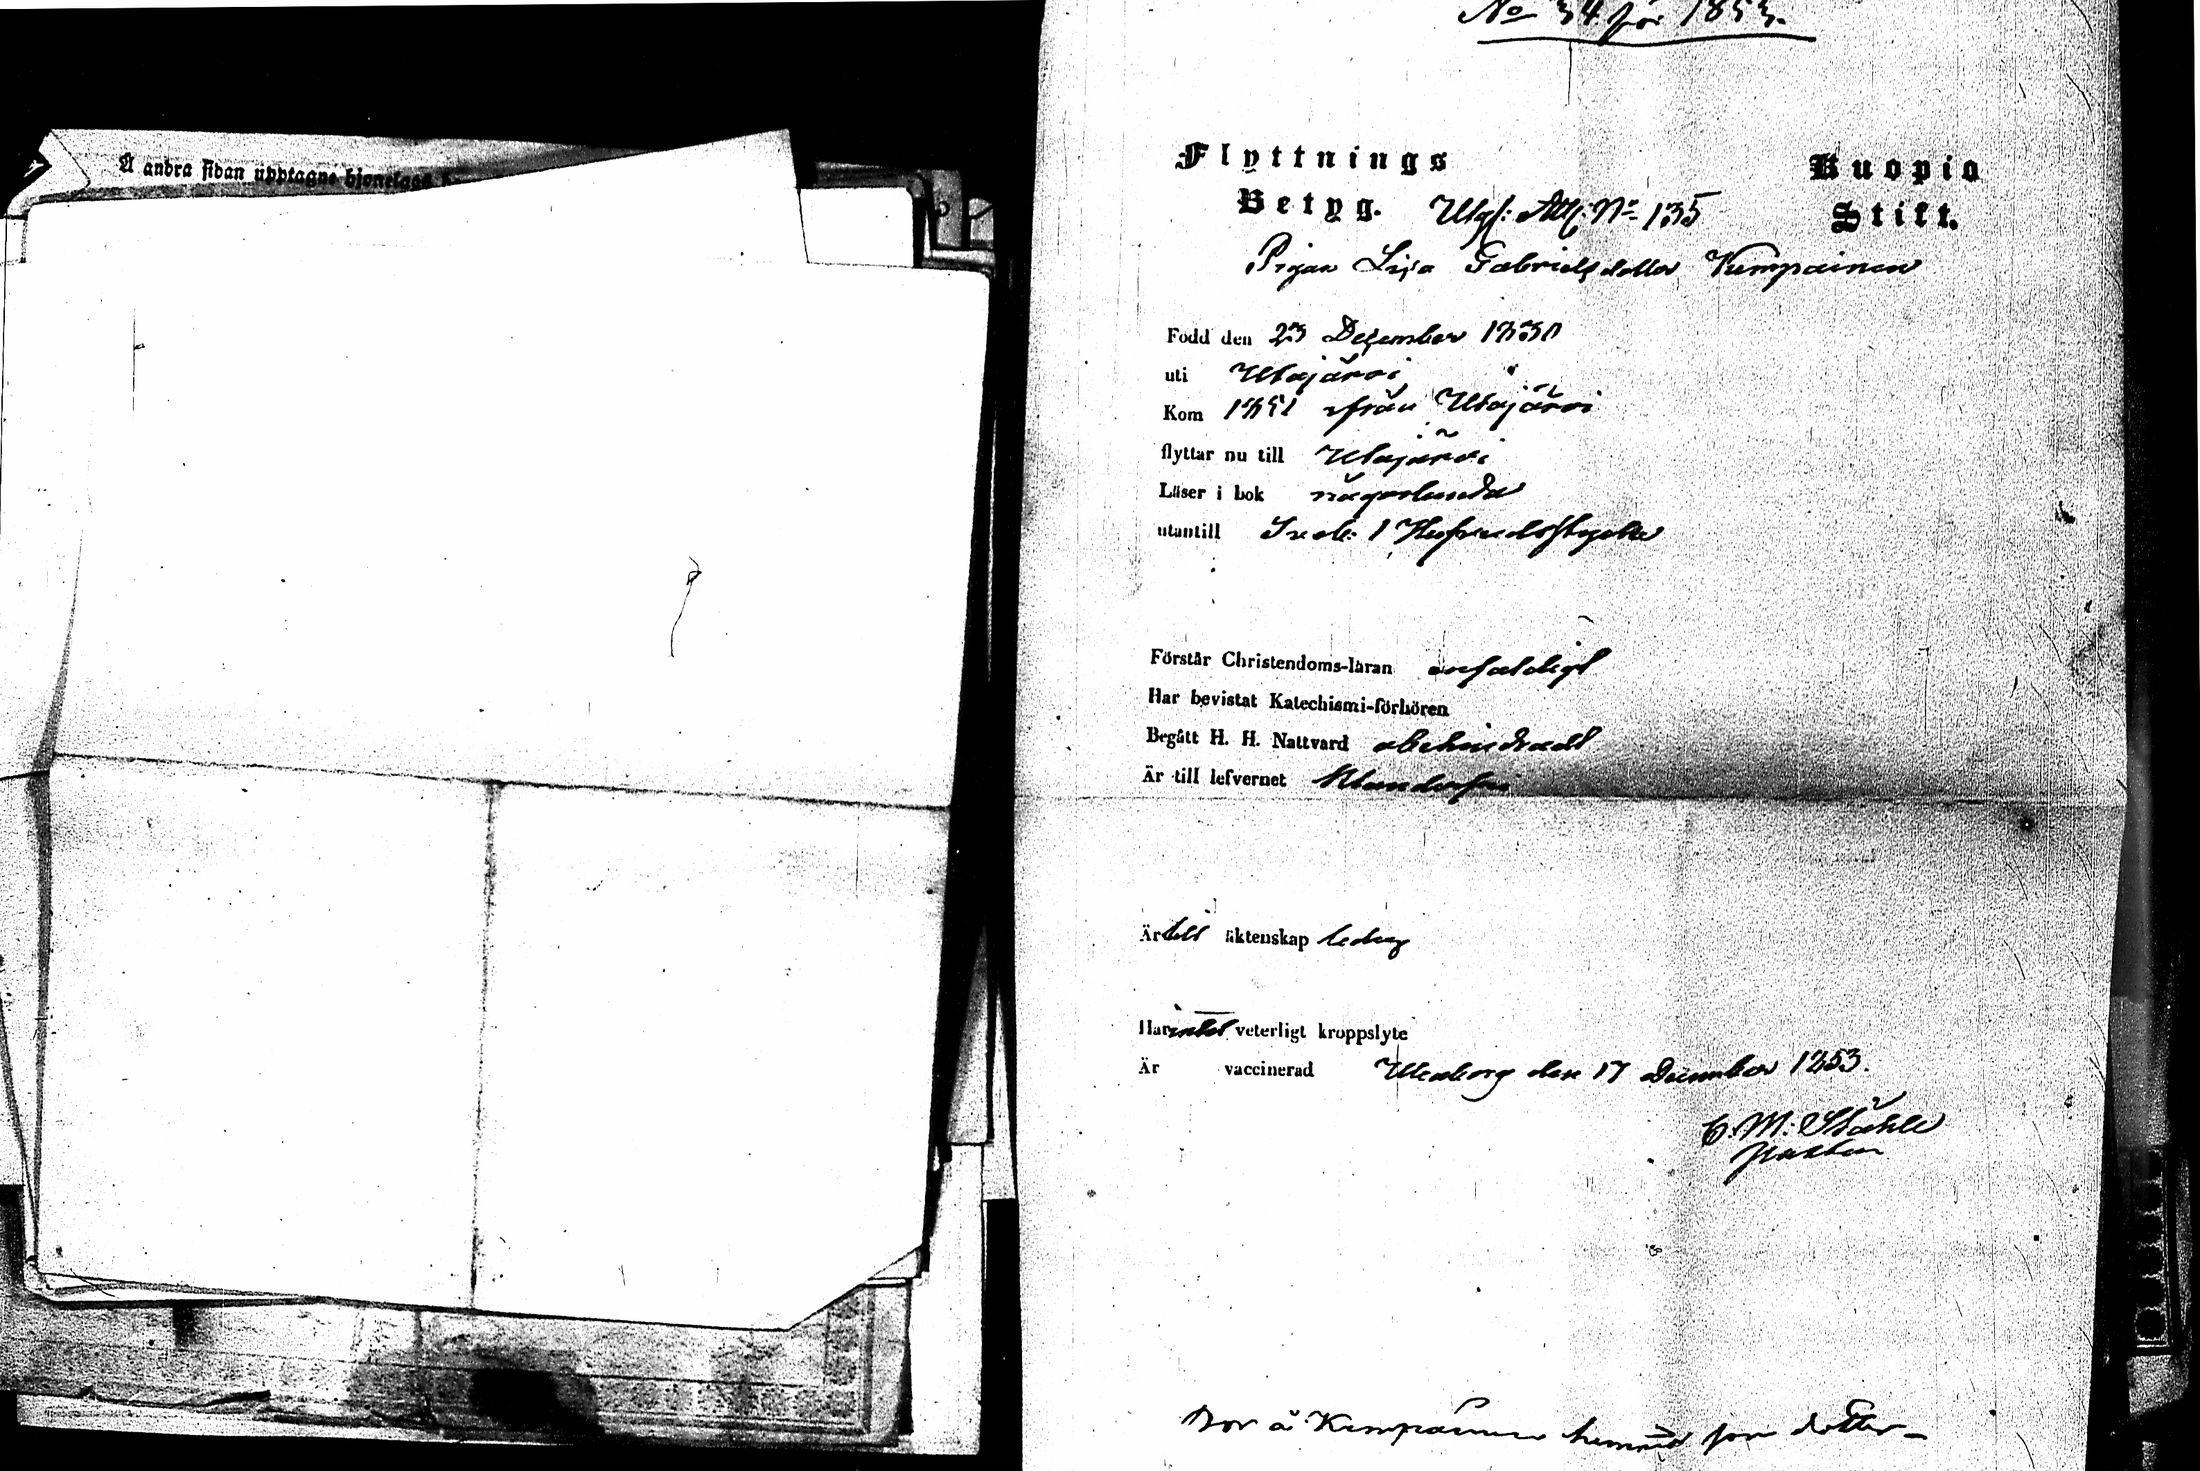 Å andra sidan upptagne hjonelags
No 34 för 1853.
Flyttnings
Betyg.
Kuopio
Stift.
Utgf: Att: No 135
Pigan Lisa Gabrielsdotter Kempainen
Född den 23 December 1830
uti Utajärvi
Kom 1851 ifrån Utajärvi
flyttar nu till Utajärvi
Läser i bok någorlunda
utantill 1 Hufvudstycke
Förstår Christendoms-läran enfaldigt
Har bevistat Katechismi-förhören
Begått H. H. Nattvard obehindradt
Är till lefvernet klanderfri
Är till äktenskap ledig
Har intet veterligt kroppslyte
Är vaccinerad Uleåborg den 17 December 1853.
C. M. Ståhle
Pastor
Bor å Kempainen hemman som dotter